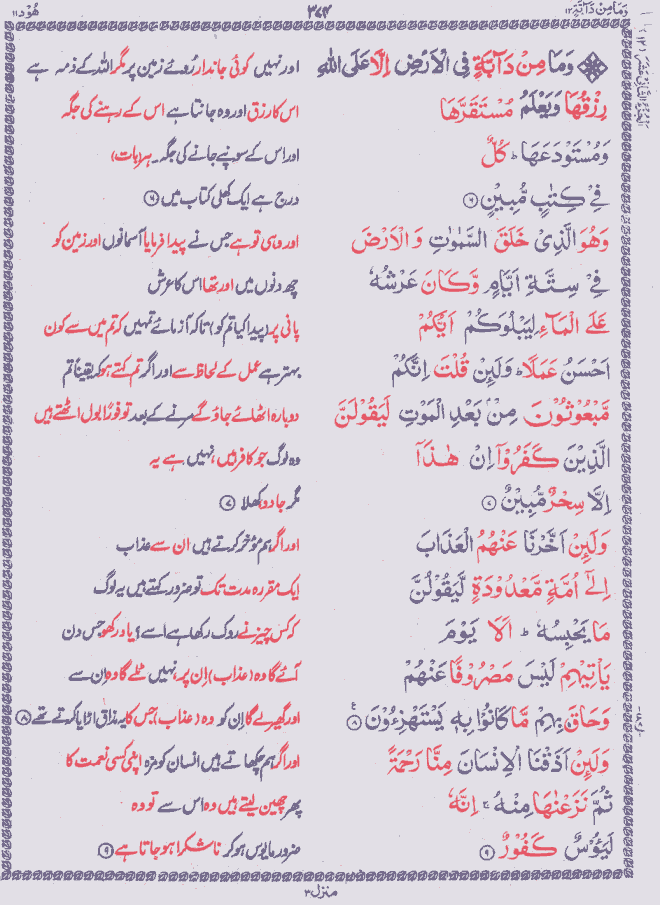 وَمَا مِنْ دَآبَّةٍ ۱۲
۳۷۴
هُوْد ۱۱
وَمَا مِنْ دَآبَّةٍ فِي الْاَرْضِ اِلَّا عَلَى اللّٰهِ اور نہیں کوئی جاندار رُوئے زمین پر مگر اللہ کے ذمہ ہے
رِزْقُهَا وَيَعْلَمُ مُسْتَقَرَّهَا اس کا رزق اور وہ جانتا ہے اس کے رہنے کی جگہ
وَمُسْتَوْدَعَهَا ؕ كُلٌّ اور اس کے سونپے جانے کی جگہ۔ ہر (بات)
فِيْ كِتٰبٍ مُّبِيْنٍ ۶ درج ہے ایک کھلی کتاب میں ۶
وَهُوَ الَّذِيْ خَلَقَ السَّمٰوٰتِ وَالْاَرْضَ اور وہی تو ہے جس نے پیدا فرمایا آسمانوں اور زمین کو
فِيْ سِتَّةِ اَيَّامٍ وَّكَانَ عَرْشُهٗ چھ دنوں میں اور تھا اس کا عرش
عَلَى الْمَآءِ لِيَبْلُوَكُمْ اَيُّكُمْ پانی پر (پیدا کیا تم کو) تاکہ آزمائے تمہیں کہ تم میں سے کون
اَحْسَنُ عَمَلًا ؕ وَلَئِنْ قُلْتَ اِنَّكُمْ بہتر ہے عمل کے لحاظ سے اور اگر تم کہتے ہو کہ یقیناً تم
مَّبْعُوْثُوْنَ مِنْۢ بَعْدِ الْمَوْتِ لَيَقُوْلَنَّ دوبارہ اٹھائے جاؤ گے مرنے کے بعد تو فوراً بول اٹھتے ہیں
الَّذِيْنَ كَفَرُوْٓا اِنْ هٰذَآ وہ لوگ جو کافر ہیں، نہیں ہے یہ
اِلَّا سِحْرٌ مُّبِيْنٌ ۷ مگر جادو کھلا ۷
وَلَئِنْ اَخَّرْنَا عَنْهُمُ الْعَذَابَ اور اگر ہم مؤخر کرتے ہیں ان سے عذاب
اِلٰٓى اُمَّةٍ مَّعْدُوْدَةٍ لَّيَقُوْلُنَّ ایک مقررہ مدت تک تو ضرور کہتے ہیں یہ لوگ
مَا يَحْبِسُهٗ ؕ اَلَا يَوْمَ کہ کس چیز نے روک رکھا ہے اسے؟ یاد رکھو جس دن
يَاْتِيْهِمْ لَيْسَ مَصْرُوْفًا عَنْهُمْ آئے گا وہ (عذاب) اِن پر، نہیں ٹلے گا وہ اِن سے
وَحَاقَ بِهِمْ مَّا كَانُوْا بِهٖ يَسْتَهْزِءُوْنَ ۸ اور گھیر لے گا اِن کو وہ (عذاب) جس کا یہ مذاق اڑایا کرتے تھے ۸
وَلَئِنْ اَذَقْنَا الْاِنْسَانَ مِنَّا رَحْمَةً اور اگر ہم چکھاتے ہیں انسان کو مزہ اپنی کسی نعمت کا
ثُمَّ نَزَعْنٰهَا مِنْهُ ۚ اِنَّهٗ پھر چھین لیتے ہیں وہ اس سے تو وہ
لَيَـُٔوْسٌ كَفُوْرٌ ۹ ضرور مایوس ہو کر ناشکرا ہو جاتا ہے ۹
منزل ۳